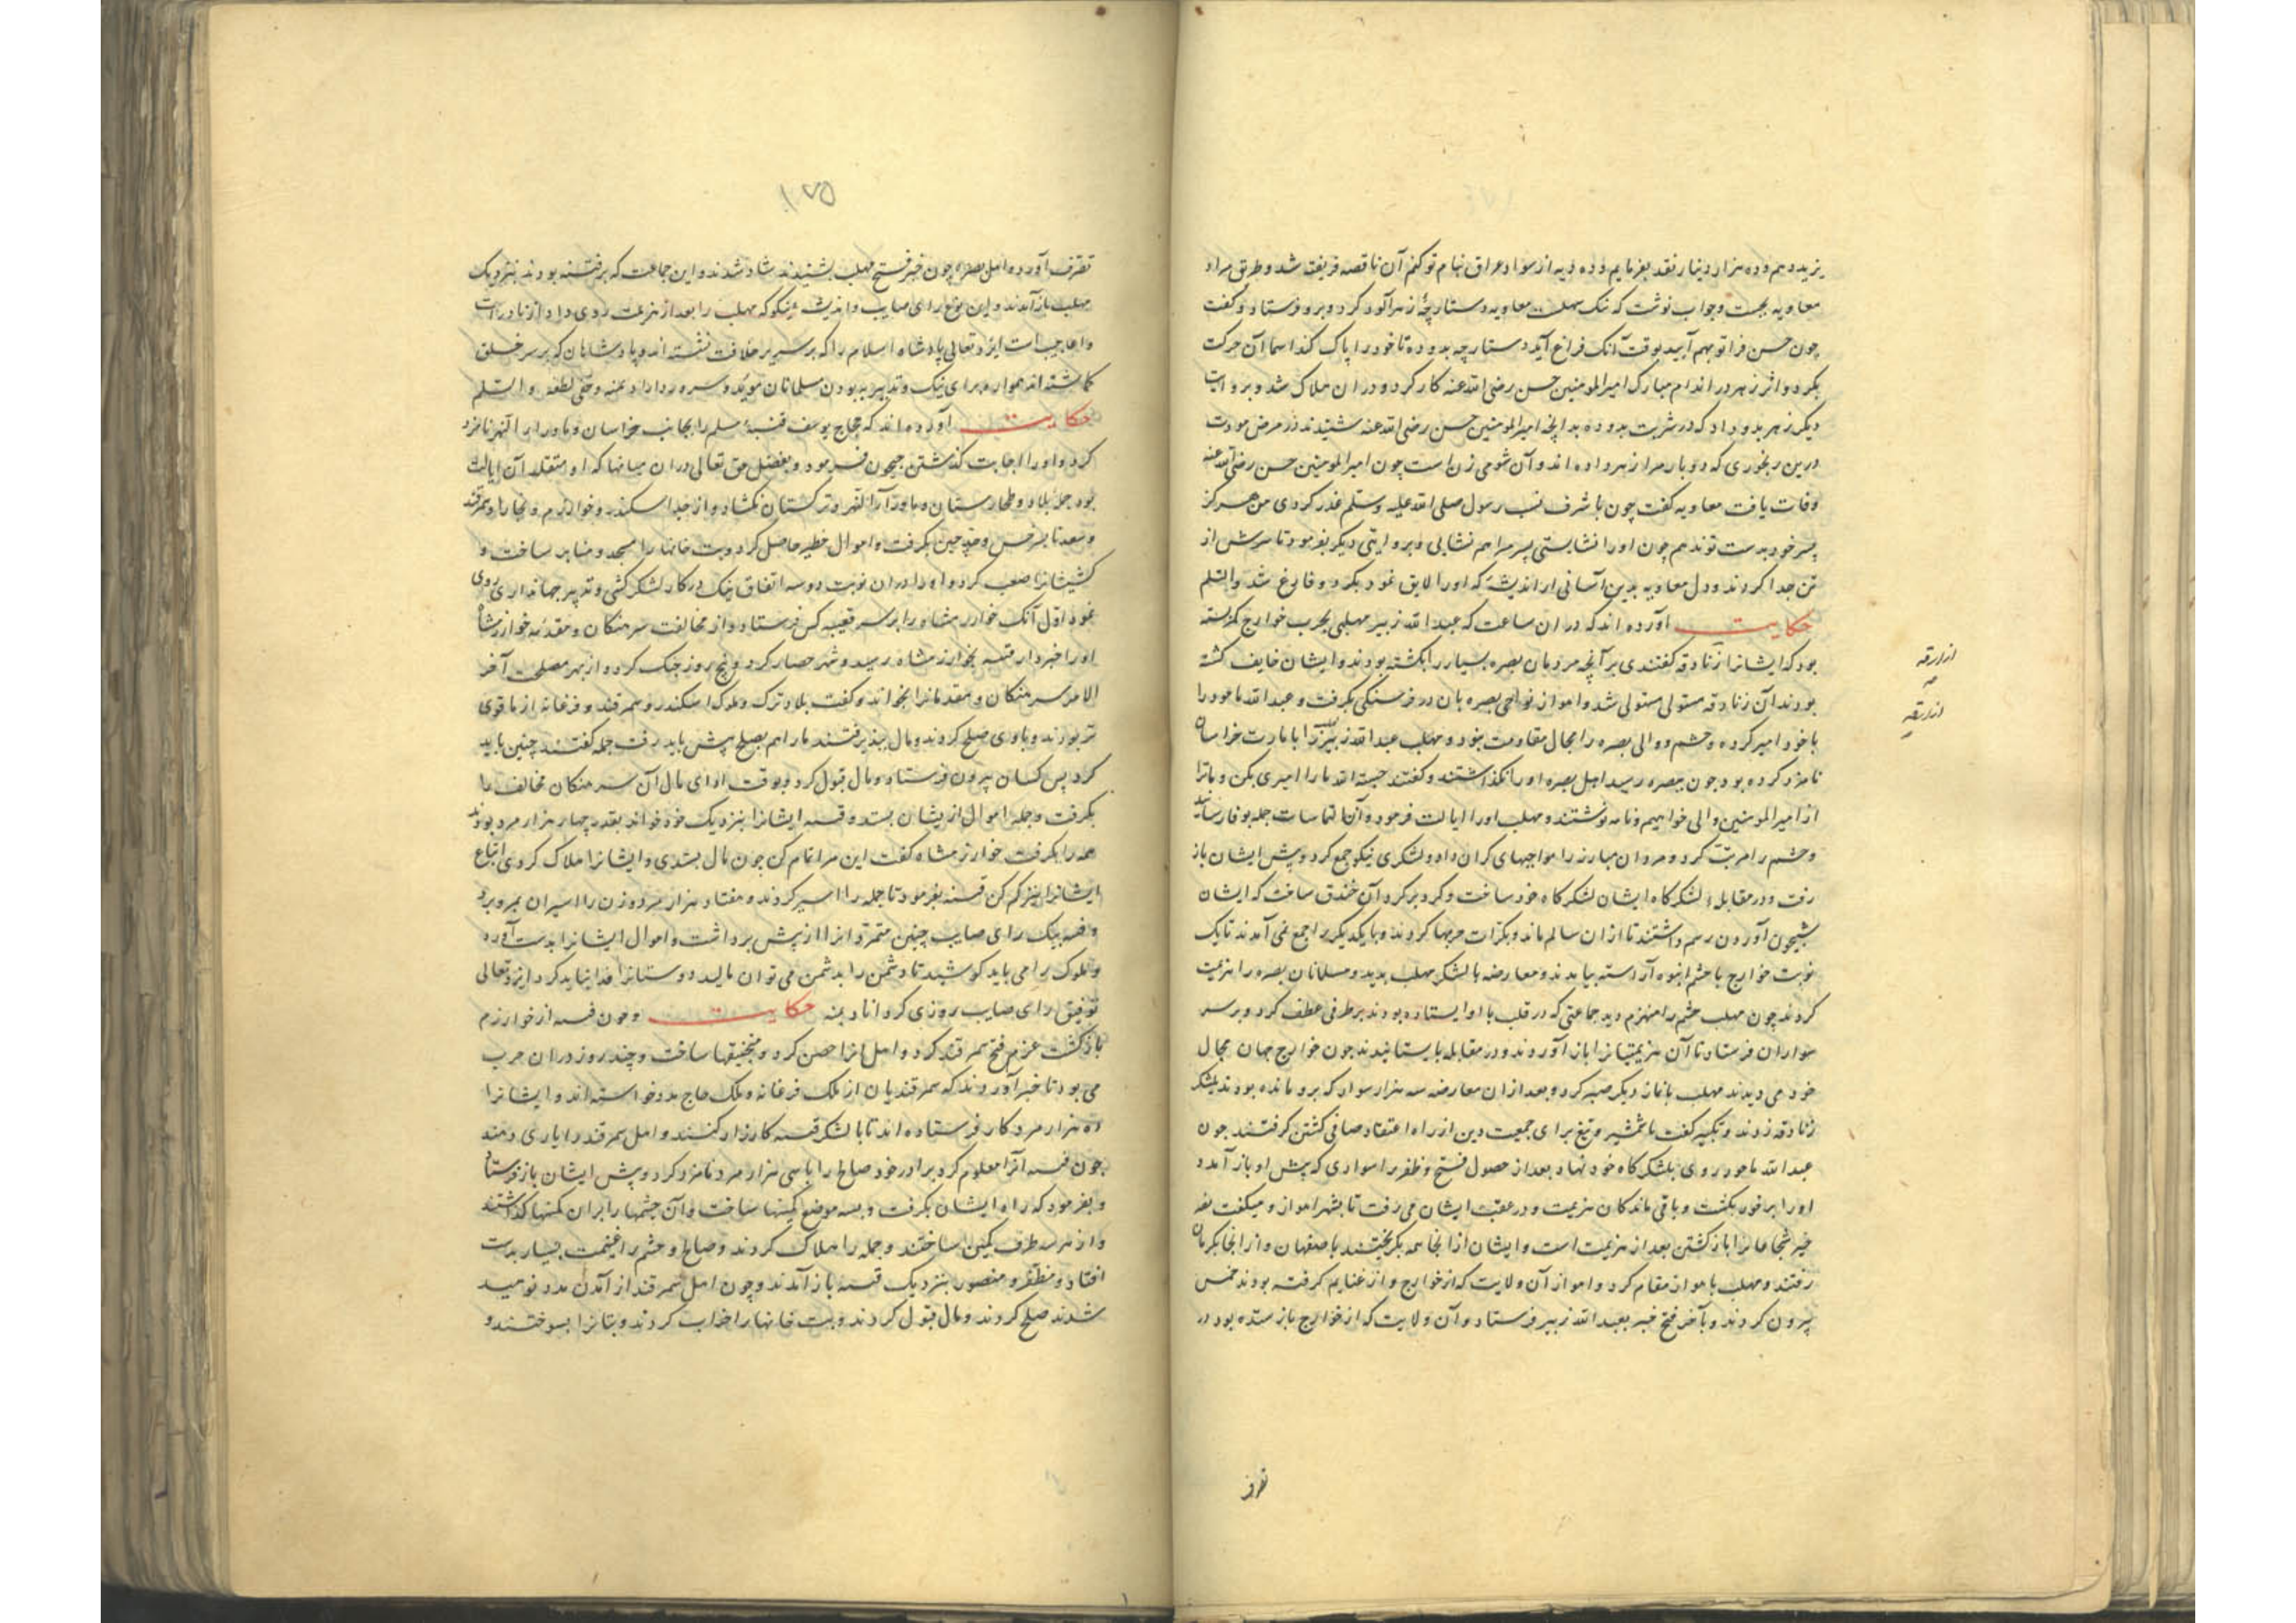 یزید دهم و ده هزار دینار نقد بفرمایم و ده دیه از سواد عراق بنام تو کنم آن ناقصه فریفته شد و طریق مراد
معاویه بجست و جواب نوشت که نیک سهلست معاویه دستارچهٔ زهرآلود کرد و برو فرستاد و گفت
چون حسن فراتو بهم آید بوقت آنک فراغ آید دستارچه بدو ده تا خود را پاک کند اسما آن حرکت
بکرد و اثر زهر در اندام مبارک امیرالمومنین حسن رضی الله عنه کار کرد و در ان هلاک شد و بروایت
دیگر زهر بدو داد که در شربت بدو ده بدانچه امیرالمومنین حسن رضی الله عنه شنیدند در مرض موت
درین رنجوری که دو بار مرا زهر داده اند و آن شومی زن است چون امیرالمومنین حسن رضی الله عنه
وفات یافت معاویه گفت چون با شرف نسب رسول صلی الله علیه وسلم غدر کردی من هرگز
پسر خود بدست تو ندهم چون او را نشایستی پسر مرا هم نشایی و بروایتی دیگر بفرمود تا سرش از
تن جدا کردند و دل معاویه بدین آسانی از اندیشهٔ که او را لایق نمود بکرد و فارغ شد والسلم
حکایت آورده اند که در ان ساعت که عبدالله زبیر مهلبی بحرب خوارج کمر بسته
بود که ایشانرا زنادقه گفتندی بر آنچه مردمان بصره بسیار را بکشته بودند و ایشان خایف گشته
بودند آن زنادقه مستولی مستولی شد و اهواز نواحی بصره بان در فرسنگی بگرفت و عبدالله ماحور را
با خود امیر کرده و حشم و والی بصره را مجال مقاومت نبود و مهلب عبدالله زبیر را بامارت خراسان
نامزد کرده بود چون ببصره رسید اهل بصره او را نگذاشتند و گفتند حسبة الله ما را امیری بکن و باترا
از امیرالمومنین والی خواهیم و نامه نوشتند و مهلب او را ایالت فرمود و آن التماسات جمله بوفا رسانید
و حشم را مرتب کرد و مردان مبارز را مواجبهای گران داد و لشکری نیکو جمع کرد و پیش ایشان باز
رفت و در مقابله لشکرگاه ایشان لشکرگاه خود ساخت و گرد بر گرد آن خندق ساخت که ایشان
شبیخون آوردن رسم داشتند تا از ان سالم ماند و بکرات حربها کردند و با یکدیگر راجع نمی آمدند تا یک
نوبت خوارج با حشم انبوه آراسته بیامدند و معارضه با لشکر مهلب بدید و مسلمانان بصره را هزیمت
کردند چون مهلب حشم را منهزم دید جماعتی که در قلب با او ایستاده بودند بر طرفی عطف کرد و بر سر
سواران فرستاد تا آن هزیمتیانرا باز آوردند و در مقابله بایستانیدند چون خوارج جهان مجال
خود می دیدند مهلب با نماز دیگر صبر کرد و بعد از ان معارضه سه هزار سوار که برو مانده بودند بلشکر
زنادقه زدند و تکبیر گفت با شمشیر و تیغ برای جمعیت دین از راه اعتقاد صافی کشتن گرفتند چون
عبدالله ماحور روی بلشکرگاه خود نهاد بعد از حصول فتح و ظفر بر اسواری که پیش او باز آمد و
او را بر فور بکشت و باقی ماندگان هزیمت و در عقب ایشان می رفت تا بشهر اهواز و میگفت
خیر شجاعانرا بازگشتن بعد از هزیمت است و ایشان از انجا همه بگریختند باصفهان و از انجا بکرمان
رفتند و مهلب باهواز مقام کرد و اهواز آن ولایت که از خوارج و از غنایم گرفته بودند خمس
بیرون کردند و بآخر فتح خبر بعبدالله زبیر فرستاد و آن ولایت که از خوارج باز ستده بود در
ازارقه
ازارقه
تصرف
۱۷۵
تصرف آورد و اهل بصره چون خبر فتح مهلب بشنیدند شاد شدند و این جماعت که برفته بودند بنزدیک
مهلب باز آمدند و این نوع رای صایب و اندیشه نیکو که مهلب را بعد از هزیمت روی داد از نادرات
و اعاجیب است ایزد تعالی پادشاه اسلام را که بر سریر خلافت نشسته اند و پادشاهان که بر سر خلق
گماشته اند همواره برای نیک و تدبیر به بودن مسلمانان مؤید و مسرور داراد بمنه و خفی لطفه والسلم
حکایت آورده اند که حجاج یوسف قتیبهٔ مسلم را بجانب خراسان و ماوراء النهر نامزد
کرد و او را اجابت گذشتن جیحون فرمود و بفضل حق تعالی در ان میانها که او متقلد آن ایالت
بود جمله بلاد و طخارستان و ماوراء النهر و ترکستان بگشاد و از جدا اسکندر و خوارزم و بخارا و سمرقند
و سغد تا سرخس و حد چین بگرفت و اموال خطیر حاصل کرد و بت خانها را مسجد و منابر ساخت و
کشیشانرا ضعیف کرد و او را در ان نوبت دو سه اتفاق نیک در کار لشکرکشی و تدبیر جهانداری روی
نمود اول آنک خوارزمشاه را بر سر قتیبه کس فرستاد و از مخالفت سرهنگان و مقدمه خوارزمشاه
او را خبر داد قتیبه بخوارزمشاه رسید و شهر حصار کرد و پنج روز جنگ کرد و از بهر مصلحت آخر
الامر سرهنگان و مقدمانرا بخواند و گفت بلاد ترک و ملوک اسکندر و سمرقند و فرغانه از ما قوی
تر بودند و با وی صلح کردند و مال بپذیرفتند ما را هم بصلح پیش باید رفت جمله گفتند چنین باید
کرد پس کسان بیرون فرستاد و مال قبول کرد و بوقت ادای مال آن سرهنگان مخالف ما
بگرفت و جمله اموال از یشان بستد و قتیبه ایشانرا بنزدیک خود خواند بقدر چهار هزار مرد بودند
همه را بگرفت خوارزمشاه گفت این مرا تمام کن چون مال بستدی و ایشانرا هلاک کردی اتباع
ایشانرا نیز کم کن قتیبه بفرمود تا جمله را اسیر کردند و هفتاد هزار مرد و زن را اسیران بمرو برد
و قتیبه بیک رای صایب چنین متمردانرا از پیش برداشت و اموال ایشانرا بدست آورد
و ملوک را می باید کوشید تا دشمن را بدشمن می توان مالید و دوستانرا فدا نباید کرد ایزد تعالی
توفیق رای صایب روزی گرداناد بمنه حکایت و چون قتیبه از خوارزم
بازگشت عزم فتح سمرقند کرد و اهل آنرا حصن کرد و منجنیقها ساخت و چند روز در ان حرب
می بود تا خبر آوردند که سمرقندیان از ملک فرغانه و ملک چاچ مدد خواسته اند و ایشانرا
ده هزار مرد کار فرستاده اند تا با لشکر قتیبه کارزار کنند و اهل سمرقند را یاری دهند
چون قتیبه آنرا معلوم کرد برادر خود صالح را با سی هزار مرد نامزد کرد و پیش ایشان باز فرستاد
و بفرمود که راه ایشان بگرفت و بسه موضع کمینها ساخت و آن چشمها را بر ان کمینها گذاشتند
و از هر سه طرف کمین ساختند و جمله را هلاک کردند و صالح و حشم را غنیمت بسیار بدست
افتاد و مظفر و منصور بنزدیک قتیبه باز آمدند و چون اهل سمرقند از آمدن مدد نومید
شدند صلح کردند و مال قبول کردند و بت خانها را خراب کردند و بتانرا بسوختند و